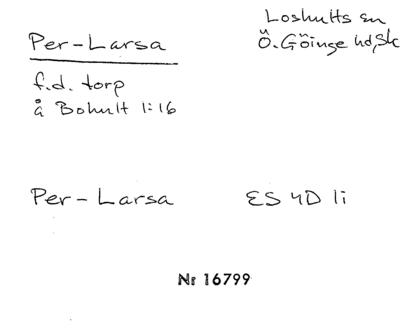 Loshults sn
Per-Larsa
Ö. Göinge hd, Sk
f.d. torp
å Bohult 1:16
Per-Larsa ES 4D 1i
Nr 16799